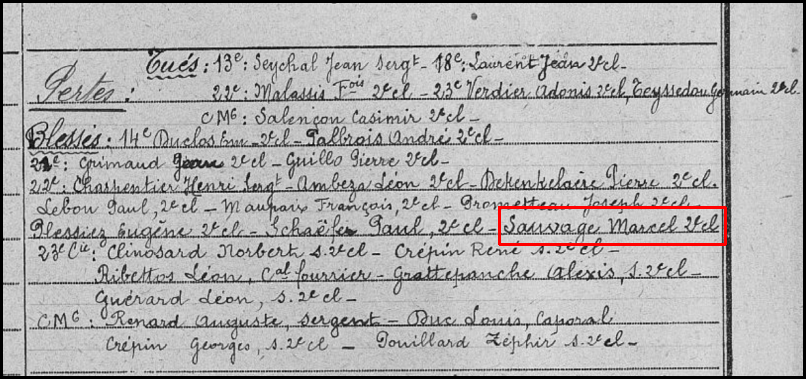 Tués : 13e : Seychal Jean Sergt - 18e : Laurent Jean 2e cl.
Pertes : 22e : Malassis Fois 2e cl - 23e Verdier Adonis 2e cl, Teyssedou Germain 2e cl.
CMG : Salençon Casimir 2e cl -
Blessés : 14e Duclos Em - 2e cl - Palbrois André 2e cl -
21e : Grimaud Jean 2e cl - Guillo Pierre 2e cl -
22e : Charpentier Henri Sergt - Ambeza Léon 2e cl - Dekenkelaire Pierre 2e cl.
Lebon Paul, 2e cl - Maupaix François, 2e cl - Prometteau Joseph 2e cl
Plessiez Eugène 2e cl - Schaëfer Paul, 2e cl - Sauvage Marcel 2e cl
23e Cie : Clinosard Norbert s. 2e cl - Crépin René s. 2e cl -
Ribettos Léon, Cal fourrier - Grattepanche Alexis, s. 2e cl -
Guérard Léon, s. 2e cl -
CMG : Renard Auguste, sergent - Duc Louis, Caporal
Crépin Georges, s. 2e cl - Pouillard Zéphir s. 2e cl -